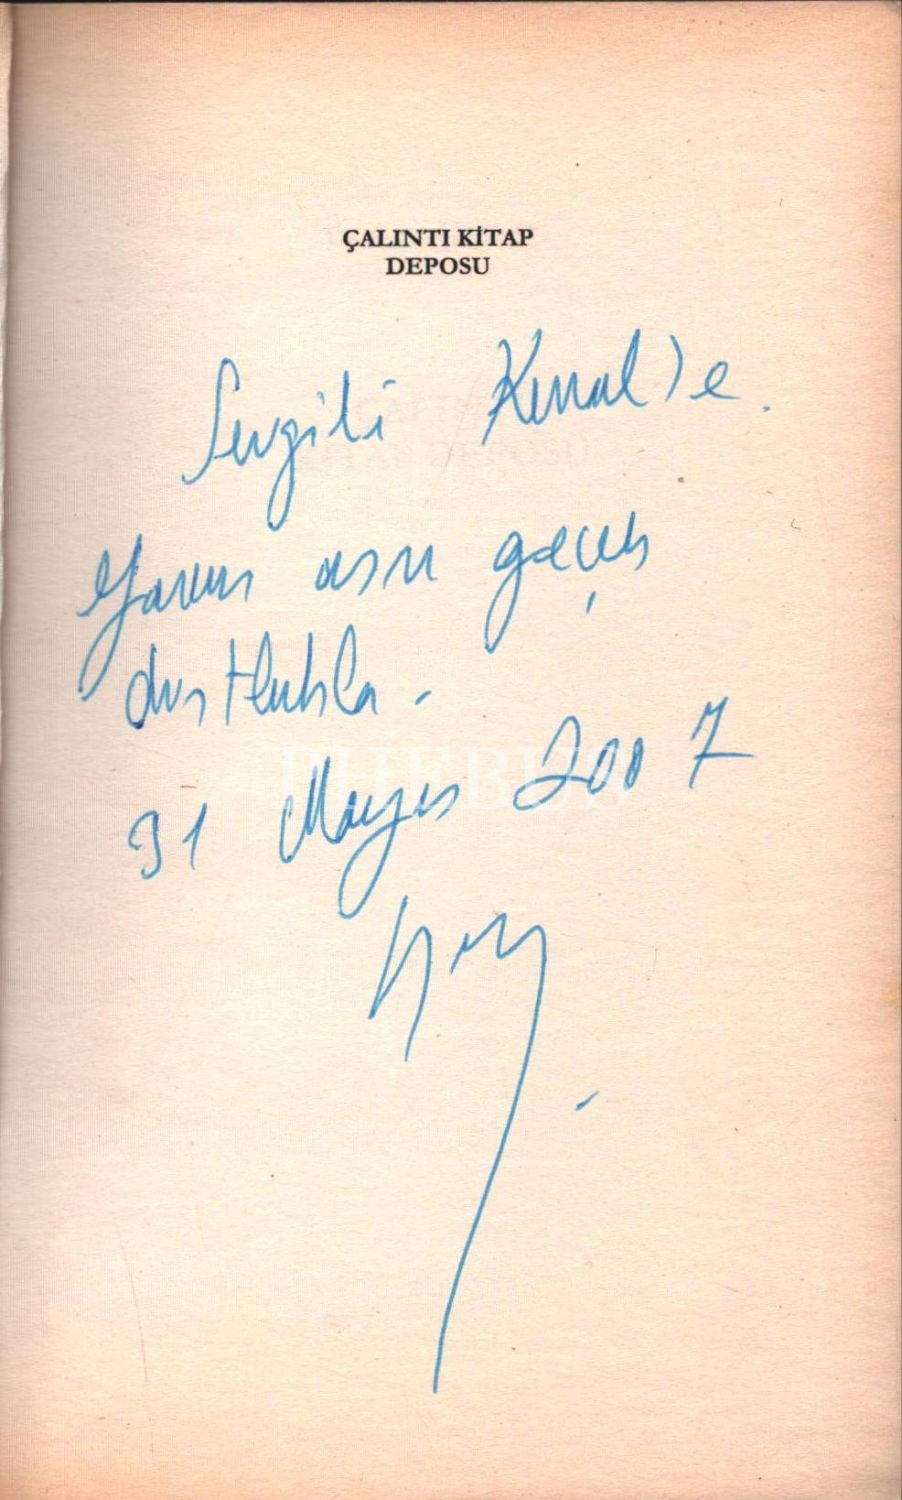 ÇALINTI KİTAP
DEPOSU
Sevgili Kemal'e.
Yarım asrı geçen
dostlukla.
31 Mayıs 2007
PHEBUS